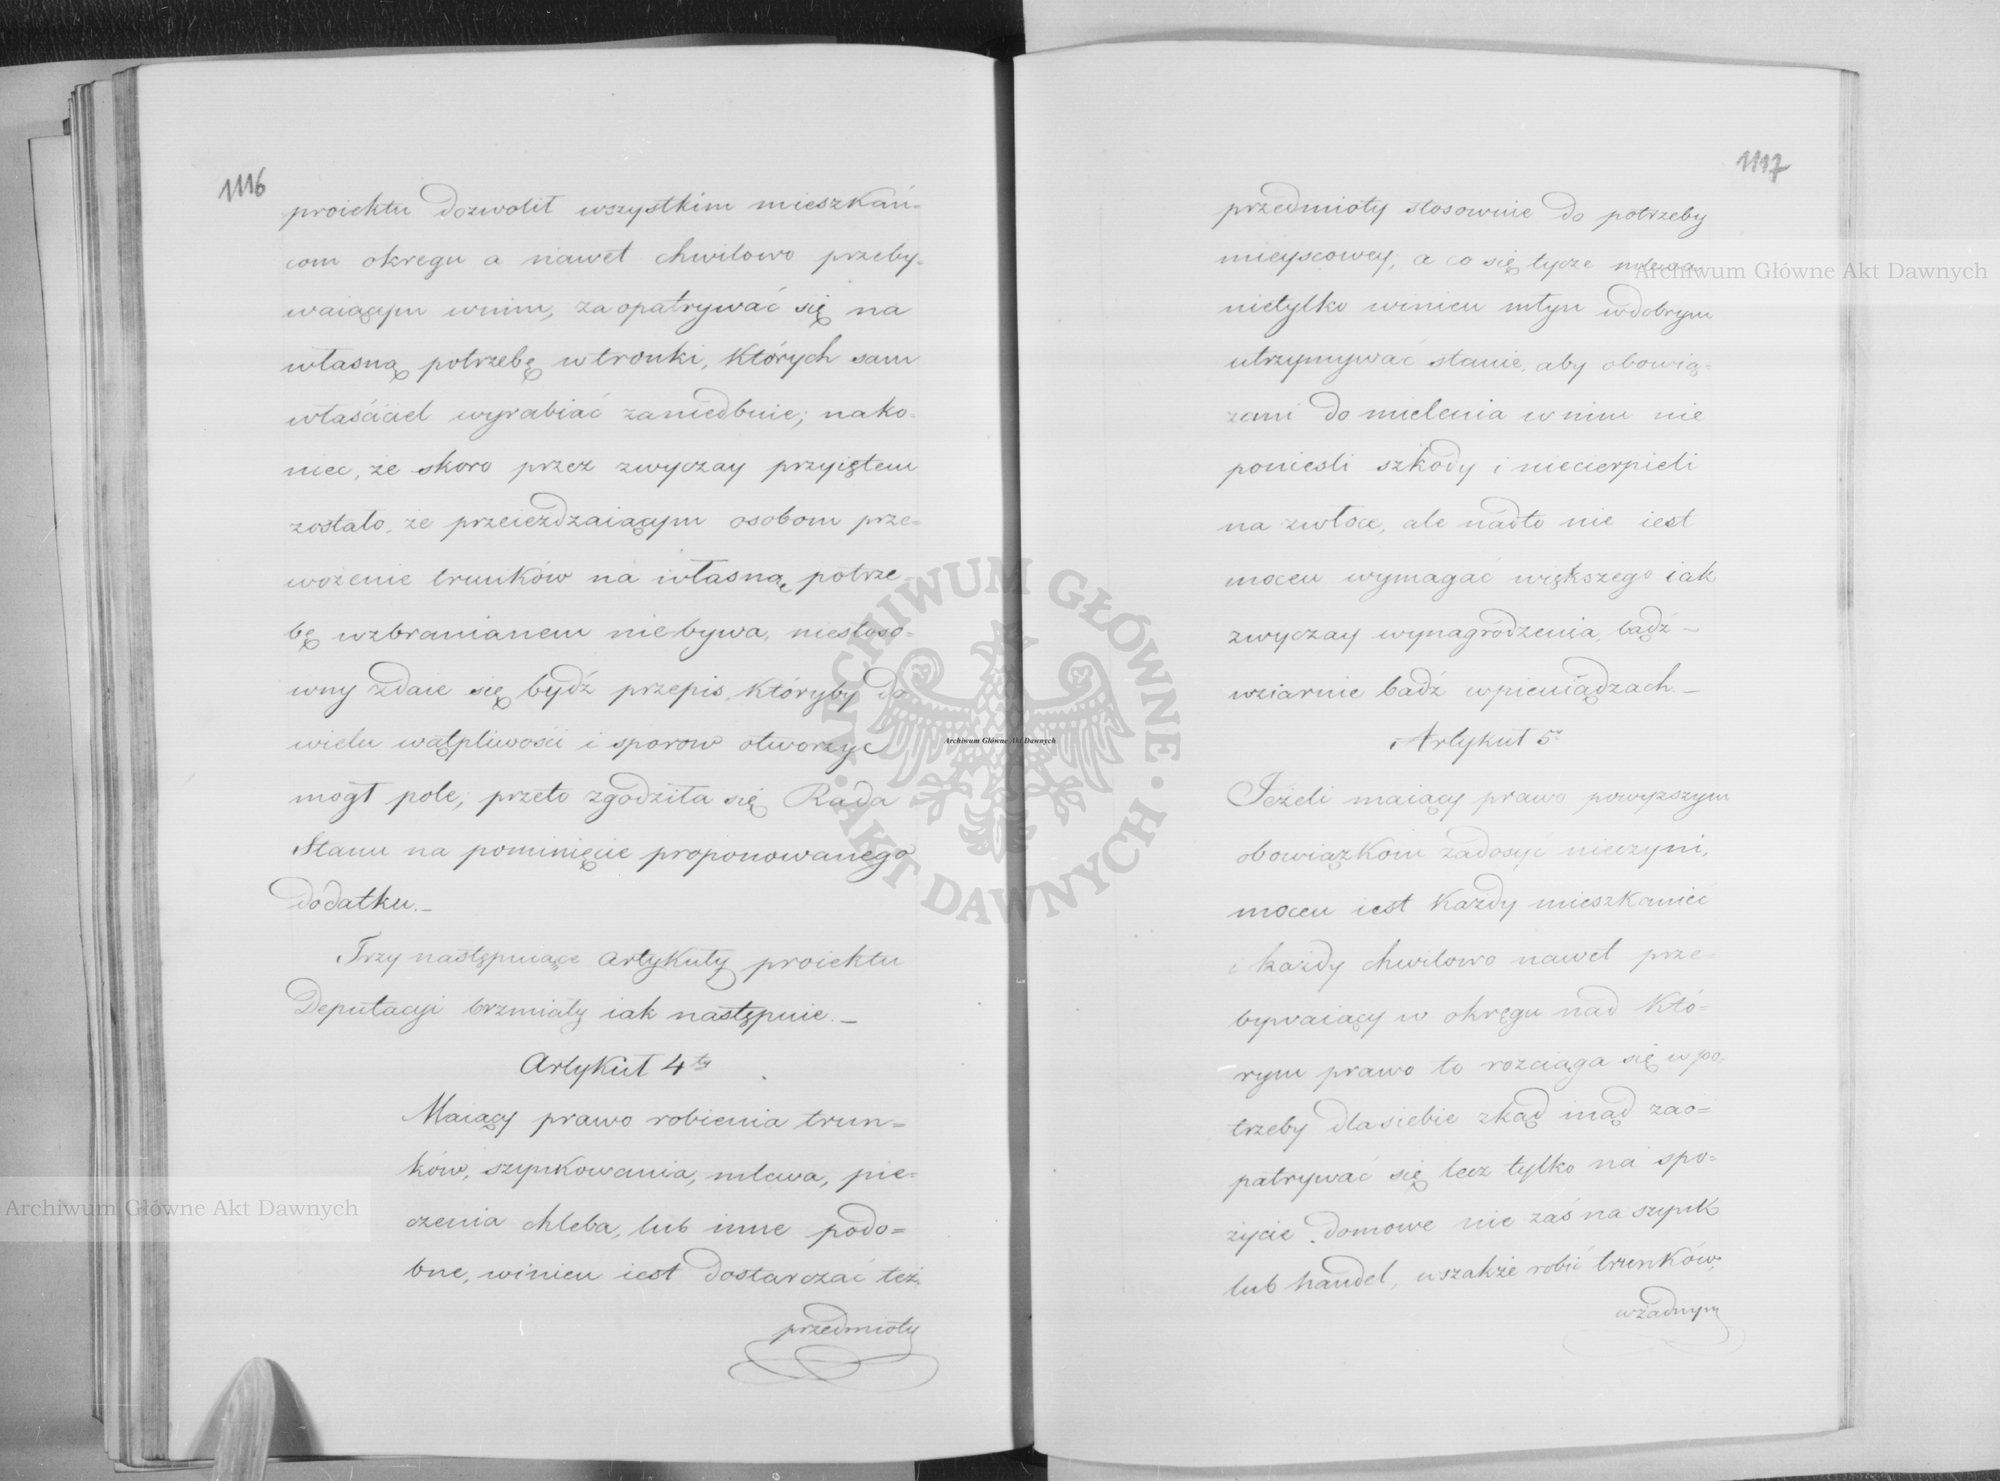 1116
proiektu dozwolił wszystkim mieszkań-
com okregu a nawet chwilowo przeby-
waiącym wnim, zaopatrywać się na
własną potrzebę wtronki, których sam
właściciel wyrabiać zaniedbuie; nako-
niec, że skoro przez zwyczay przyiętem
zostało, że przeieżdzaiącym osobom prze-
wożenie trunków na własną potrze-
bę wzbranianem niebywa, niestoso-
wny zdaie się bydź przepis, któryby do
wielu wątpliwości i sporow otworzyć
mogł pole; przeto zgodziła się Rada
Stanu na pominięcie proponowanego
dodatku._
Trzy następuiące artykuły proiektu
Deputacyi brzmiały iak następuie._
Artykuł 4ty
Maiący prawo robienia trun=
ków, szynkowania, mlewa, pie-
czenia chleba, lub inne podo=
bne, winien iest dostarczać też
przedmioty
1117
przedmioty stosownie do potrzeby
mieyscowey; a co się tycze mlewa
nietylko winien młyn wdobrym
utrzymywać stanie, aby obowią=
zani do mielenia wnim nie
ponieśli szkody i niecierpieli
na zwłoce, ale nadto nie iest
mocen wymagać większego iak
zwyczay wynagrodzenia, bądź_
wziarnie badź wpieniądzach._
Artykuł 5y
Jeżeli maiący prawo powyższym
obowiązkom zadosyć nieczyni,
mocen iest każdy mieszkaniec
i każdy chwilowo nawet prze=
bywaiący w okręgu nad któ=
rym prawo to rozciąga się wpo-
trzeby dlasiebie zkąd inąd zao=
patrywać się lecz tylko na spo-
życie domowe nie zaś na szynk
lub handel, wszakże robić trunków
wżadnym
Archiwum Główne Akt Dawnych
Archiwum Główne Akt Dawnych
Archiwum Główne Akt Dawnych
ARCHIWUM GŁÓWNE · AKT DAWNYCH ·